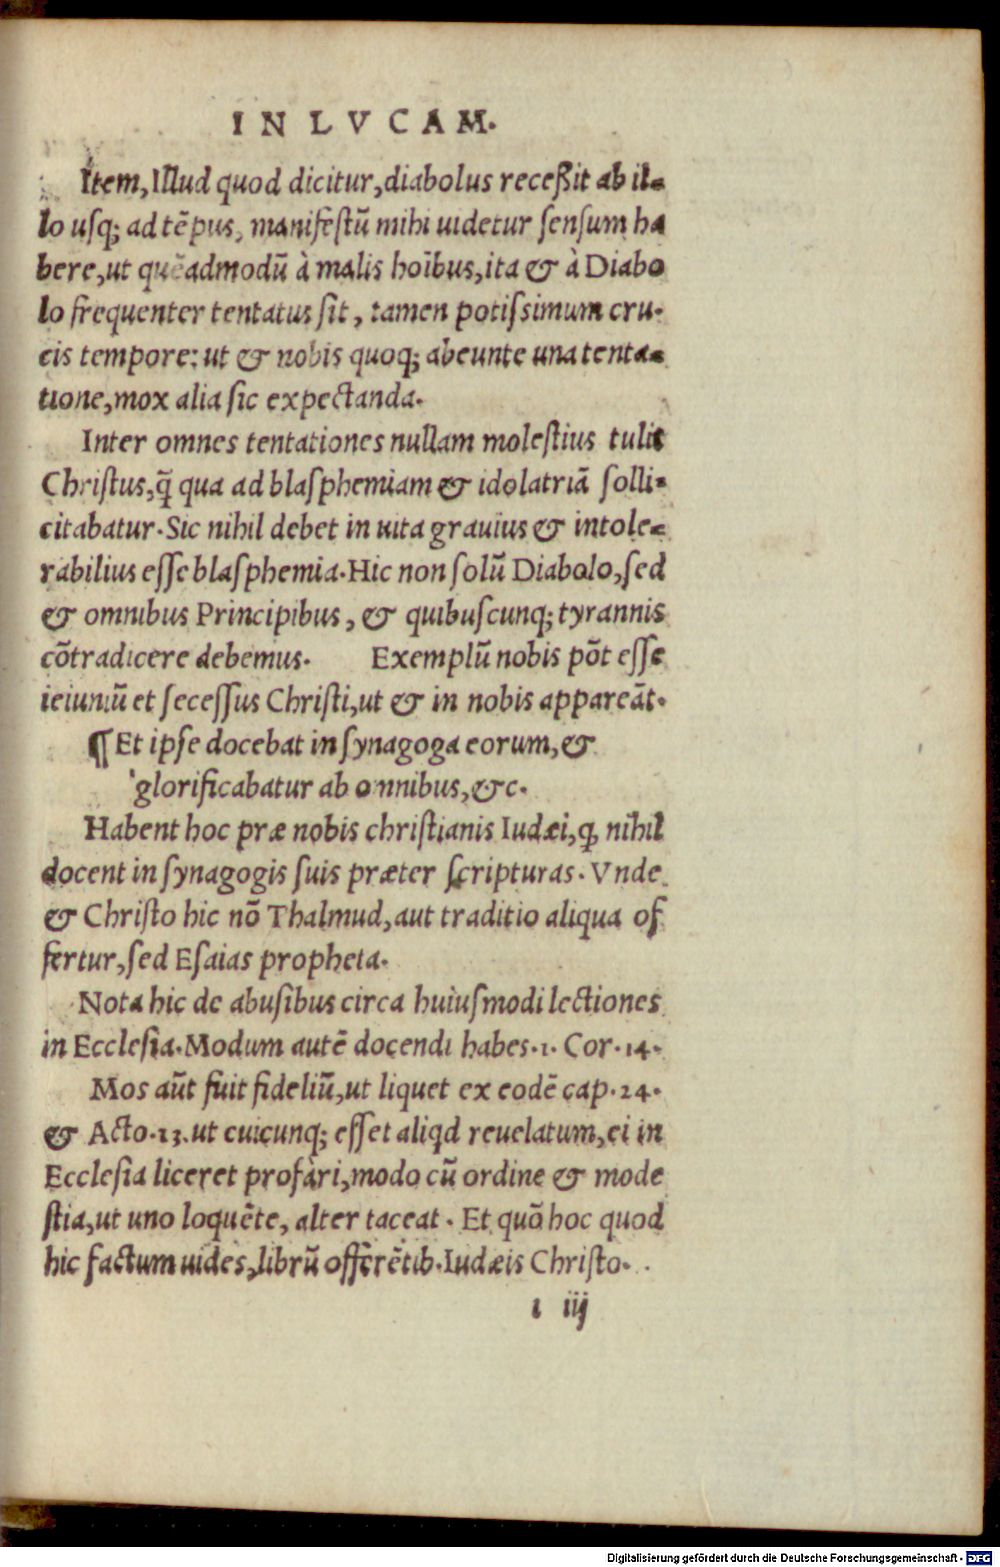 IN LVCAM.
Item, Illud quod dicitur, diabolus receßit ab il-
lo usq; ad tẽpus, manifestũ mihi uidetur sensum ha
bere, ut quẽadmodũ à malis hoĩbus, ita & à Diabo
lo frequenter tentatus sit, tamen potissimum cru-
cis tempore: ut & nobis quoq; abeunte una tenta-
tione, mox alia sic expectanda.
Inter omnes tentationes nullam molestius tulit
Christus, q̃ qua ad blasphemiam & idolatriã solli-
citabatur. Sic nihil debet in uita grauius & intole-
rabilius esse blasphemia. Hic non solũ Diabolo, sed
& omnibus Principibus, & quibuscunq; tyrannis
cõtradicere debemus. Exemplũ nobis põt esse
ieiuniũ et secessus Christi, ut & in nobis appareãt.
¶ Et ipse docebat in synagoga eorum, &
glorificabatur ab omnibus, &c.
Habent hoc præ nobis christianis Iudæi, ꝙ nihil
docent in synagogis suis præter scripturas. Vnde
& Christo hic nõ Thalmud, aut traditio aliqua of
fertur, sed Esaias propheta.
Nota hic de abusibus circa huiusmodi lectiones
in Ecclesia. Modum autẽ docendi habes. 1. Cor. 14.
Mos aũt fuit fideliũ, ut liquet ex eodẽ cap. 24.
& Acto. 13. ut cuicunq; esset aliqd reuelatum, ei in
Ecclesia liceret profari, modo cũ ordine & mode
stia, ut uno loquẽte, alter taceat. Et quõ hoc quod
hic factum uides, librũ offerẽtib. Iudæis Christo.
i iij
Digitalisierung gefördert durch die Deutsche Forschungsgemeinschaft - DFG